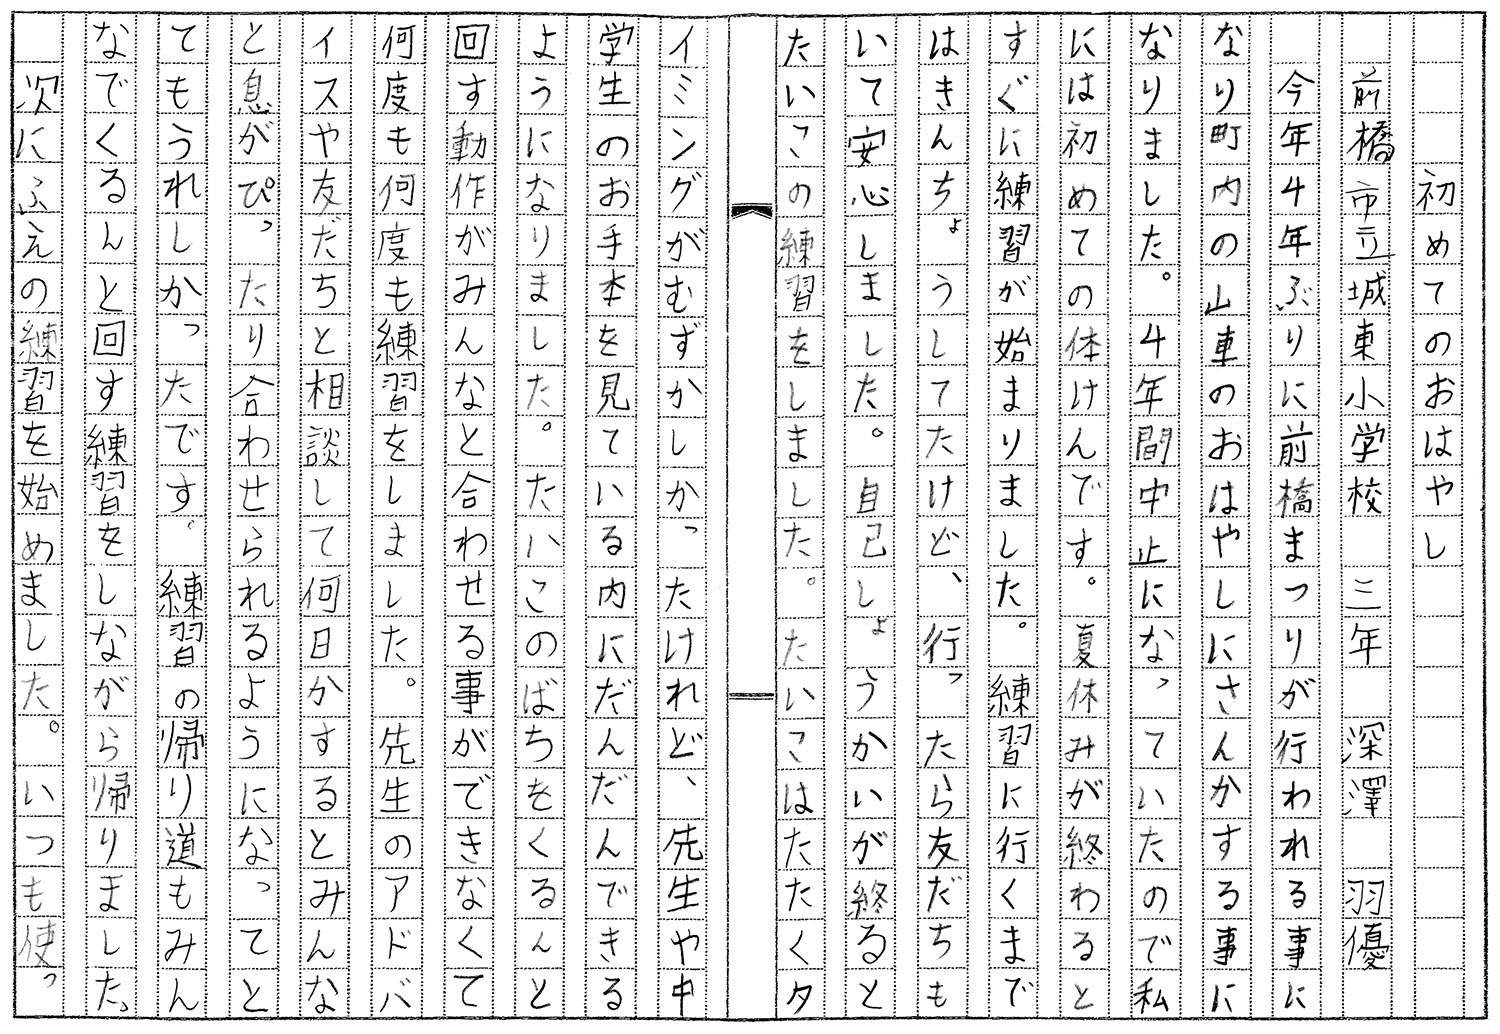 初めてのおはやし
前橋市立城東小学校　三年　深澤　羽優
今年４年ぶりに前橋まつりが行われる事に
なり町内の山車のおはやしにさんかする事に
なりました。４年間中止になっていたので私
には初めての体けんです。夏休みが終わると
すぐに練習が始まりました。練習に行くまで
はきんちょうしてたけど、行ったら友だちも
いて安心しました。自己しょうかいが終ると
たいこの練習をしました。たいこはたたくタ
イミングがむずかしかったけれど、先生や中
学生のお手本を見ている内にだんだんできる
ようになりました。たいこのばちをくるんと
回す動作がみんなと合わせる事ができなくて
何度も何度も練習をしました。先生のアドバ
イスや友だちと相談して何日かするとみんな
と息がぴったり合わせられるようになってと
てもうれしかったです。練習の帰り道もみん
なでくるんと回す練習をしながら帰りました。
次にふえの練習を始めました。いつも使っ